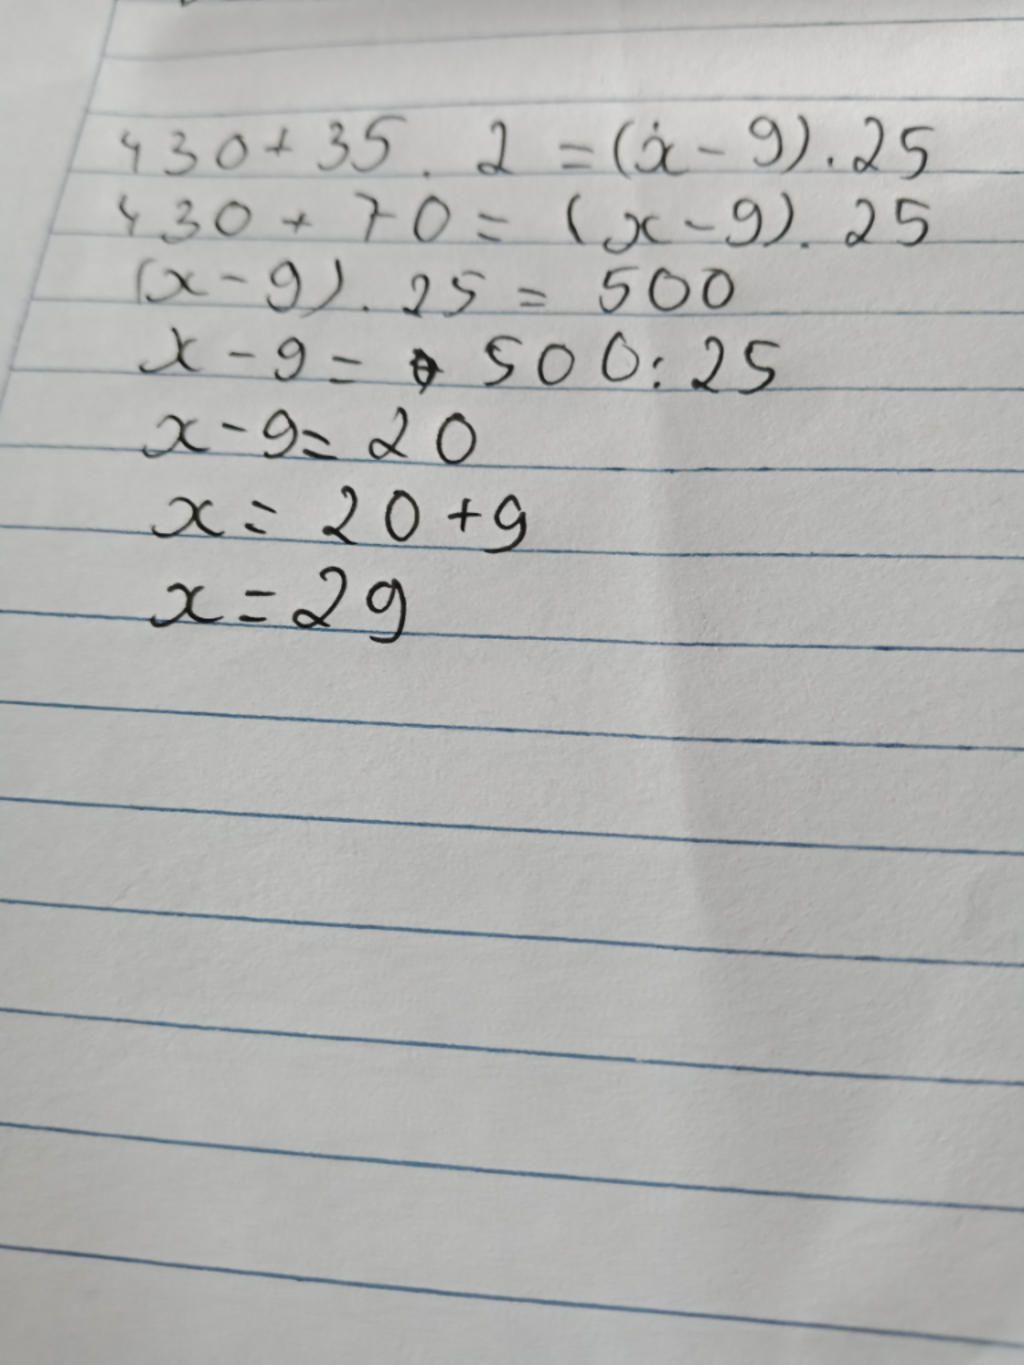 430 + 35 . 2 = (x - 9) . 25
430 + 70 = (x - 9) . 25
(x - 9) . 25 = 500
x - 9 = 500 : 25
x - 9 = 20
x = 20 + 9
x = 29